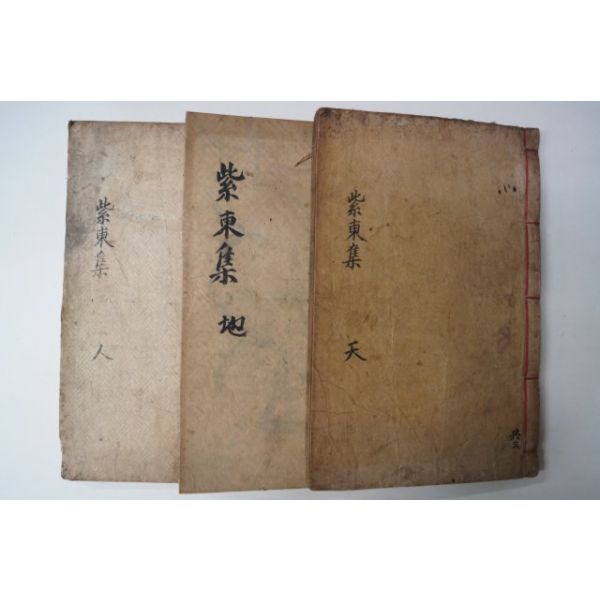 紫東集 天
共三
紫東集 地
紫東集 人